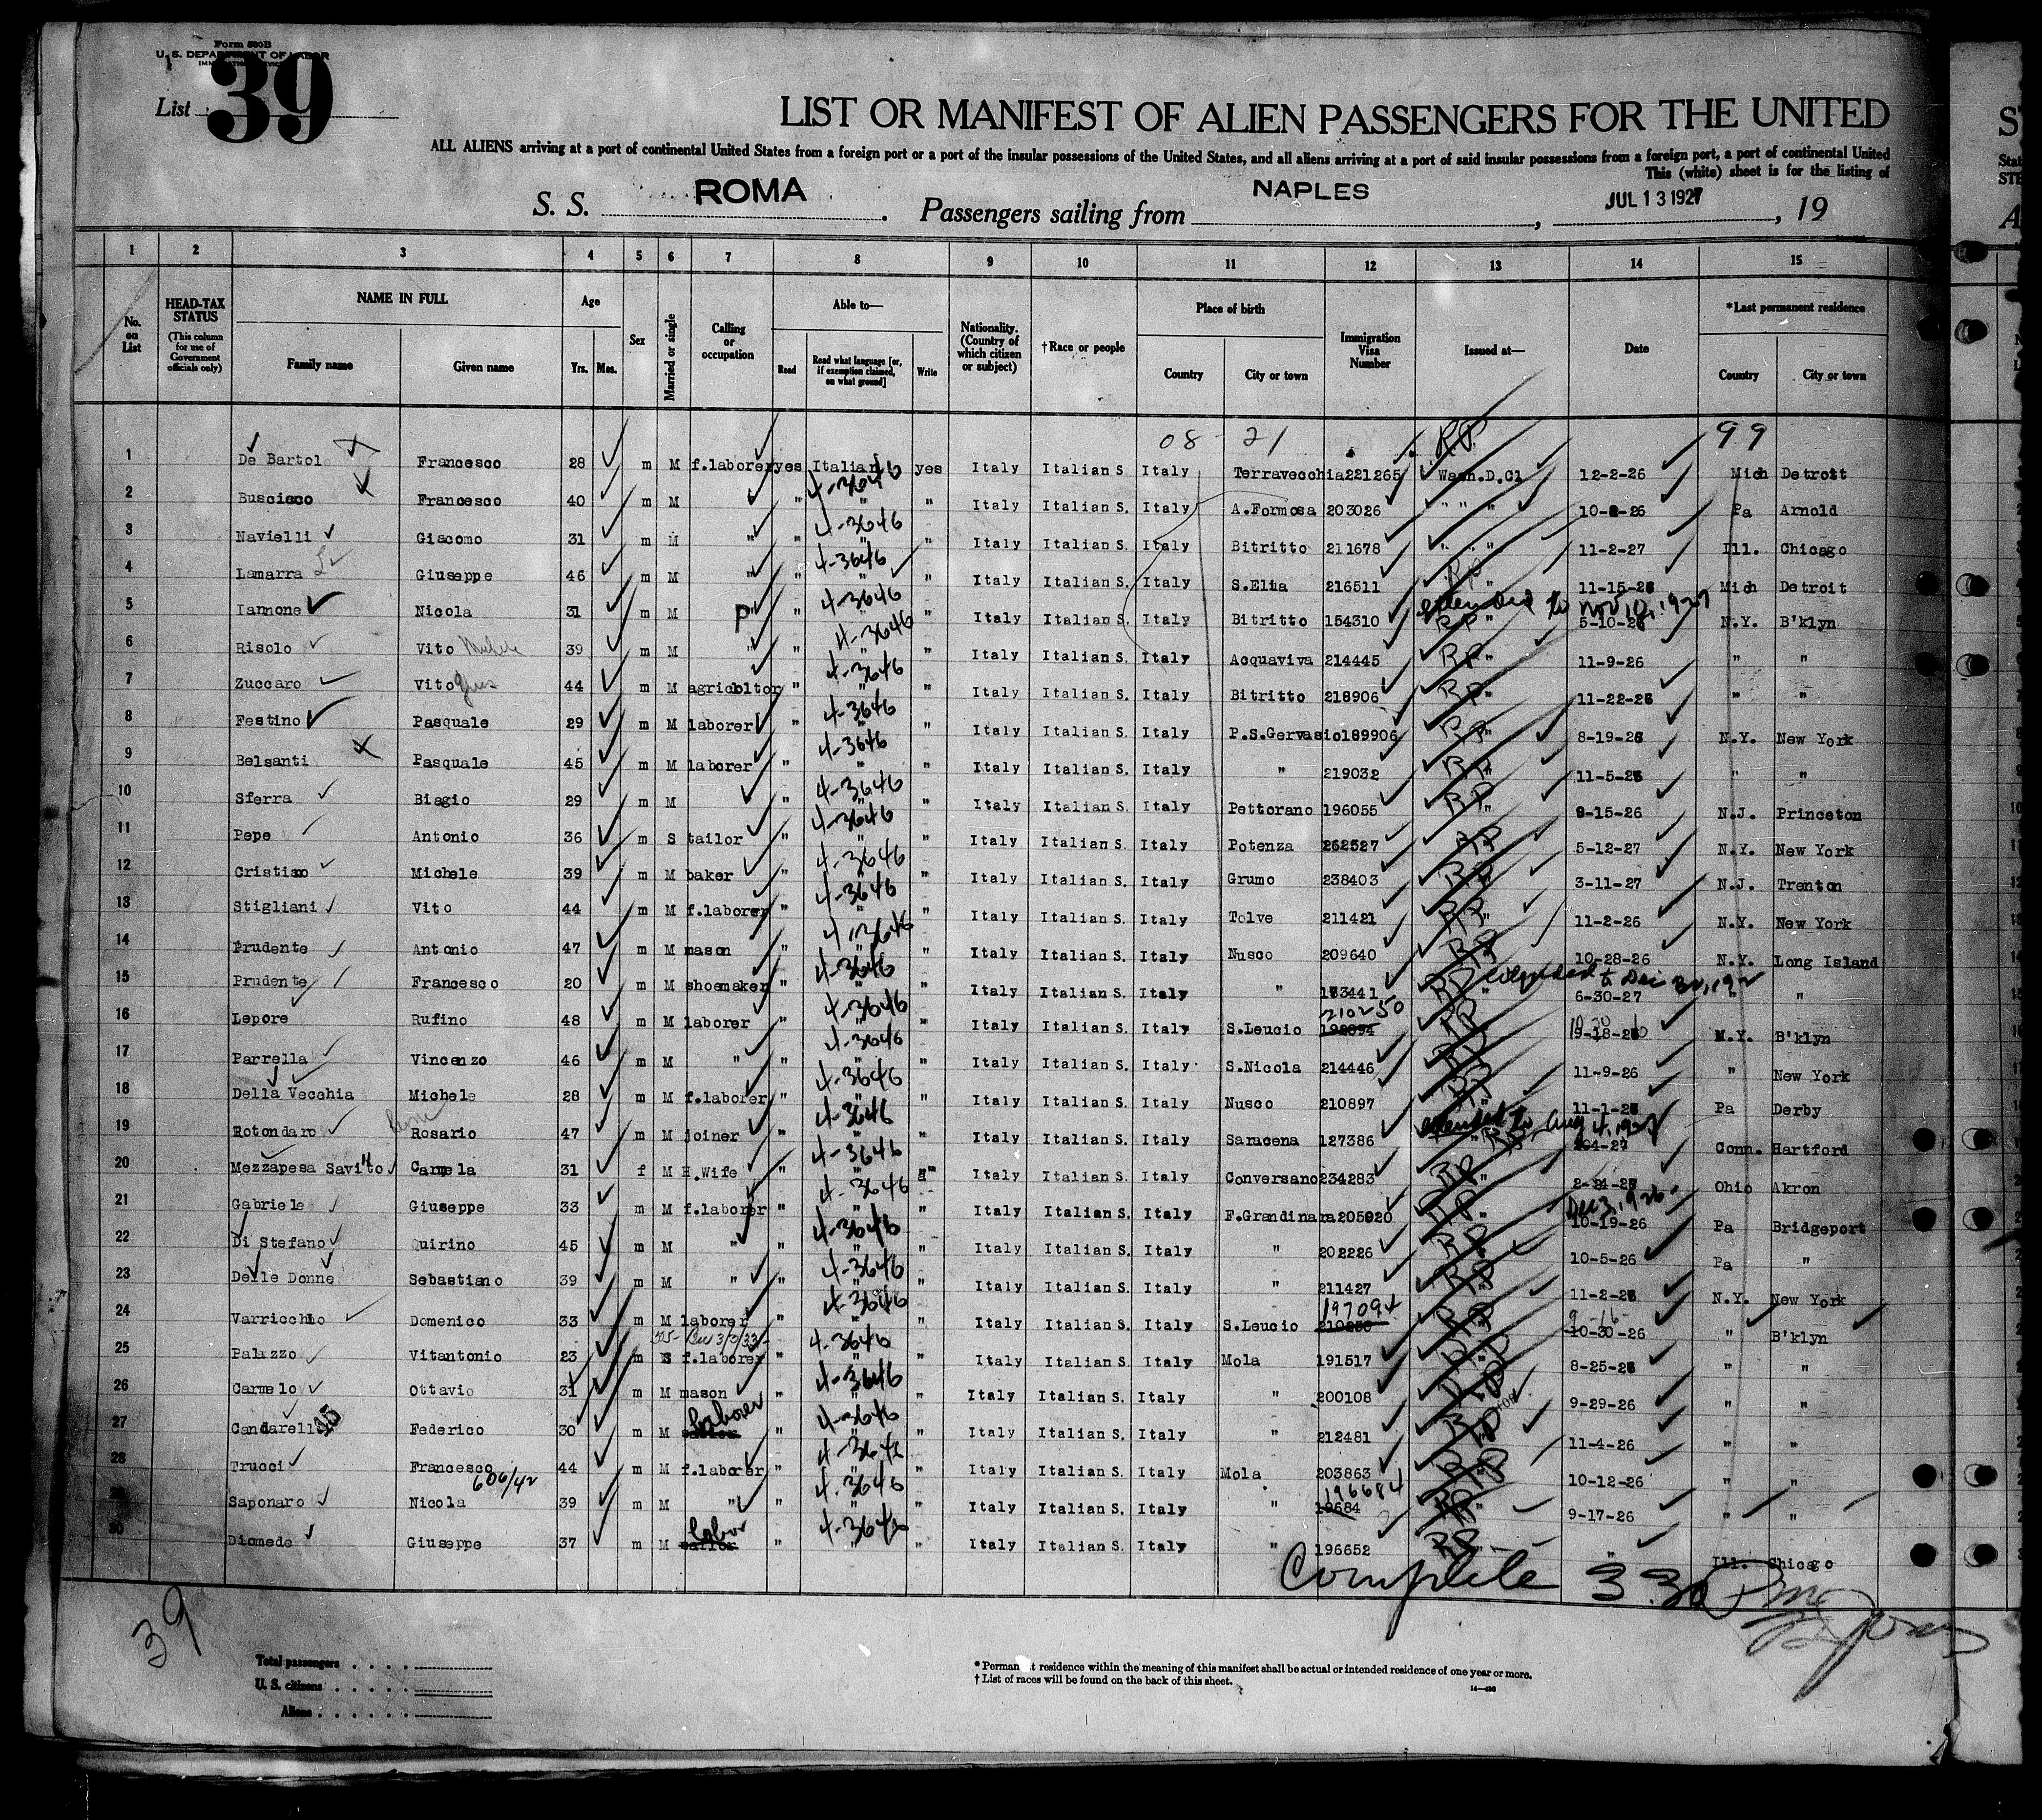 Form 500B
U. S. DEPARTMENT OF LABOR
List 39
LIST OR MANIFEST OF ALIEN PASSENGERS FOR THE UNITED
ALL ALIENS arriving at a port of continental United States from a foreign port or a port of the insular possessions of the United States, and all aliens arriving at a port of said insular possessions from a foreign port, a port of continental United
This (white) sheet is for the listing of
S. S. ROMA. Passengers sailing from NAPLES, JUL 13 1927, 19
1 2 3 4 5 6 7 8 9 10 11 12 13 14 15
No. on List
HEAD-TAX STATUS (This column for use of Government officials only)
NAME IN FULL Family name Given name
Age Yrs. Mos.
Sex
Married or single
Calling or occupation
Able to— Read Read what language [or, if exemption claimed, on what ground] Write
Nationality. (Country of which citizen or subject)
†Race or people
Place of birth Country City or town
Immigration Visa Number
Issued at—
Date
*Last permanent residence Country City or town
08 - 21 RP 99
1 De Bartolo Francesco 28 m M f.laborer yes Italian yes Italy Italian S. Italy Terravecchia 221265 Wash.D.Cl 12-2-26 Mich Detroit
2 Busciaco Francesco 40 m M " 4-3646 " Italy Italian S. Italy A.Formosa 203026 " " " 10-8-26 Pa Arnold
3 Navielli Giacomo 31 m M " " 4-3646 " Italy Italian S. Italy Bitritto 211678 " " " 11-2-27 Ill. Chicago
4 Lamarra Giuseppe 46 m M " " 4-3646 " Italy Italian S. Italy S.Elia 216511 RP " 11-15-26 Mich Detroit
extended to Nov 10, 1927
5 Iannone Nicola 31 m M P " " 4-3646 " Italy Italian S. Italy Bitritto 154310 RP " 5-10-26 N.Y. B'klyn
6 Risolo Vito Michele 39 m M " " 4-3646 " Italy Italian S. Italy Acquaviva 214445 RP " 11-9-26 " "
7 Zuccaro Vito Gius 44 m M agricoltor " 4-3646 " Italy Italian S. Italy Bitritto 218906 RP " 11-22-26 " "
8 Festino Pasquale 29 m M laborer " 4-3646 " Italy Italian S. Italy P.S.Gervasio 189906 RP " 8-19-26 N.Y. New York
9 Belsanti Pasquale 45 m M laborer " 4-3646 " Italy Italian S. Italy " 219032 RP " 11-5-26 " "
10 Sferra Biagio 29 m M " 4-3646 " Italy Italian S. Italy Pettorano 196055 RP " 9-15-26 N.J. Princeton
11 Pepe Antonio 36 m S tailor " 4-3646 " Italy Italian S. Italy Potenza 262527 RP 5-12-27 N.Y. New York
12 Cristiano Michele 39 m M baker " 4-3646 " Italy Italian S. Italy Grumo 238403 RP 3-11-27 N.J. Trenton
13 Stigliani Vito 44 m M f.laborer " 4-3646 " Italy Italian S. Italy Tolve 211421 RP " 11-2-26 N.Y. New York
14 Prudente Antonio 47 m M mason " 4-3646 " Italy Italian S. Italy Nusco 209640 RP 10-28-26 N.Y. Long Island
extended to Dec 30, 192
15 Prudente Francesco 20 m M shoemaker " 4-3646 " Italy Italian S. Italy " 183441 RP " 6-30-27 " "
210250
16 Lepore Rufino 48 m M laborer " 4-3646 " Italy Italian S. Italy S.Leucio 198094 RP 9-18-26 N.Y. B'klyn
17 Parrella Vincenzo 46 m M " " 4-3646 " Italy Italian S. Italy S.Nicola 214446 RP 11-9-26 " New York
18 Della Vecchia Michele 28 m M f.laborer " 4-3646 " Italy Italian S. Italy Nusco 210897 RP " 11-1-26 Pa Derby
extended to Aug 4, 1927
19 Rotondaro Rosario 47 m M joiner " 4-3646 " Italy Italian S. Italy Saracena 127386 " RP 104-27 Conn. Hartford
20 Mezzapesa Savito Carmela 31 f M H.Wife " 4-3646 " Italy Italian S. Italy Conversano 234283 RP " 2-24-27 Ohio Akron
Dec 3, 1926
21 Gabriele Giuseppe 33 m M f.laborer " 4-3646 " Italy Italian S. Italy F.Grandinara 205920 RP 10-19-26 Pa Bridgeport
22 Di Stefano Quirino 45 m M " " 4-3646 " Italy Italian S. Italy " 202226 RP 10-5-26 Pa "
23 Delle Donne Sebastiano 39 m M " " 4-3646 " Italy Italian S. Italy " 211427 RP 11-2-26 N.Y. New York
197094
24 Varricchio Domenico 33 m M laborer " 4-3646 " Italy Italian S. Italy S.Leucio 210250 RP 10-30-26 " B'klyn
25 Palazzo Vitantonio 23 m S f.laborer " 4-3646 " Italy Italian S. Italy Mola 191517 RP 8-25-26 " "
26 Carmelo Ottavio 31 m M mason " 4-3646 " Italy Italian S. Italy " 200108 RP 9-29-26 " "
laborer
27 Candarella Federico 30 m M " 4-3646 " Italy Italian S. Italy " 212481 RP 11-4-26 " "
28 Trucci Francesco 44 m M f.laborer " 4-3646 " Italy Italian S. Italy Mola 203863 RP 10-12-26 " "
606/42 196684
29 Saponaro Nicola 39 m M " " 4-3646 " Italy Italian S. Italy " 19684 RP " 9-17-26 " "
labor
30 Diomede Giuseppe 37 m M sailor " 4-3646 " Italy Italian S. Italy " 196652 RP " " Ill. Chicago
Complete 3 30 Pm
39
Total passengers
U. S. citizens
Aliens
* Permanent residence within the meaning of this manifest shall be actual or intended residence of one year or more.
† List of races will be found on the back of this sheet.